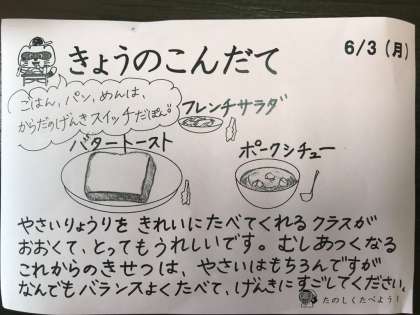 きょうのこんだて
6/3 (月)
ごはん,パン,めんは,
からだのげんきスイッチだぽん。
フレンチサラダ
バタートースト
ポークシチュー
やさいりょうりを きれいにたべてくれるクラスが
おおくて、とってもうれしいです。むしあつくなる
これからのきせつは、やさいはもちろんですが
なんでもバランスよくたべて、げんきにすごしてください。
たのしくたべよう!